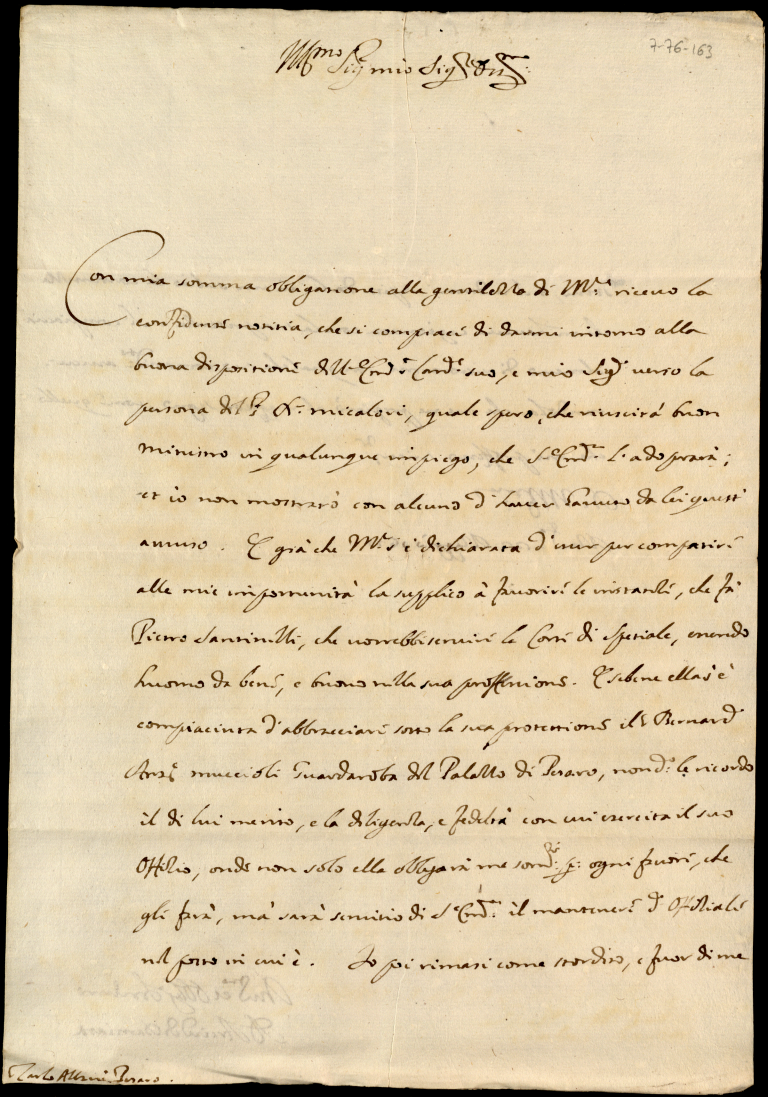 7-76-163
Ill.mo Sig.r mio Sig.r Oss.mo
Con mia somma obligatione alla gentilezza di V.S. riceuo la
confidente notitia, che si compiace di darmi intorno alla
buona dispositione dell' Em.o Card.e suo, e mio Sig.re uerso la
persona del micalori, quale spero, che riuscirà buon
ministro in qualunque impiego, che S. Em.a l'adoprarà;
et io non mostrarò con alcuno d'hauer hauuto da lei quest'
auuiso. E già che V.S. s'è dichiarata d'esser per compatire
alle mie importunità la supplico à fauorire le instanze, che fà
Pietro Santinelli, che uorrebbe seruire la Corte di Spetiale, essendo
huomo da bene, e buono nella sua professione. E sebene ella s'è
compiaciuta d'abbracciare sotto la sua protettione il Bernard.o
muccioli Guardaroba del Palazzo di Pesaro, non le ricordo
il di lui merito, e la diligenza, e fedeltà con cui esercita il suo
Offitio, onde non solo ella obligarà me p. ogni fauore, che
gli farà, mà sarà seruitio di S. Em.a il mantenere d' Offitiale
nel posto in cui è. Io poi rimasi come stordito, e fuor di me
Pesaro.